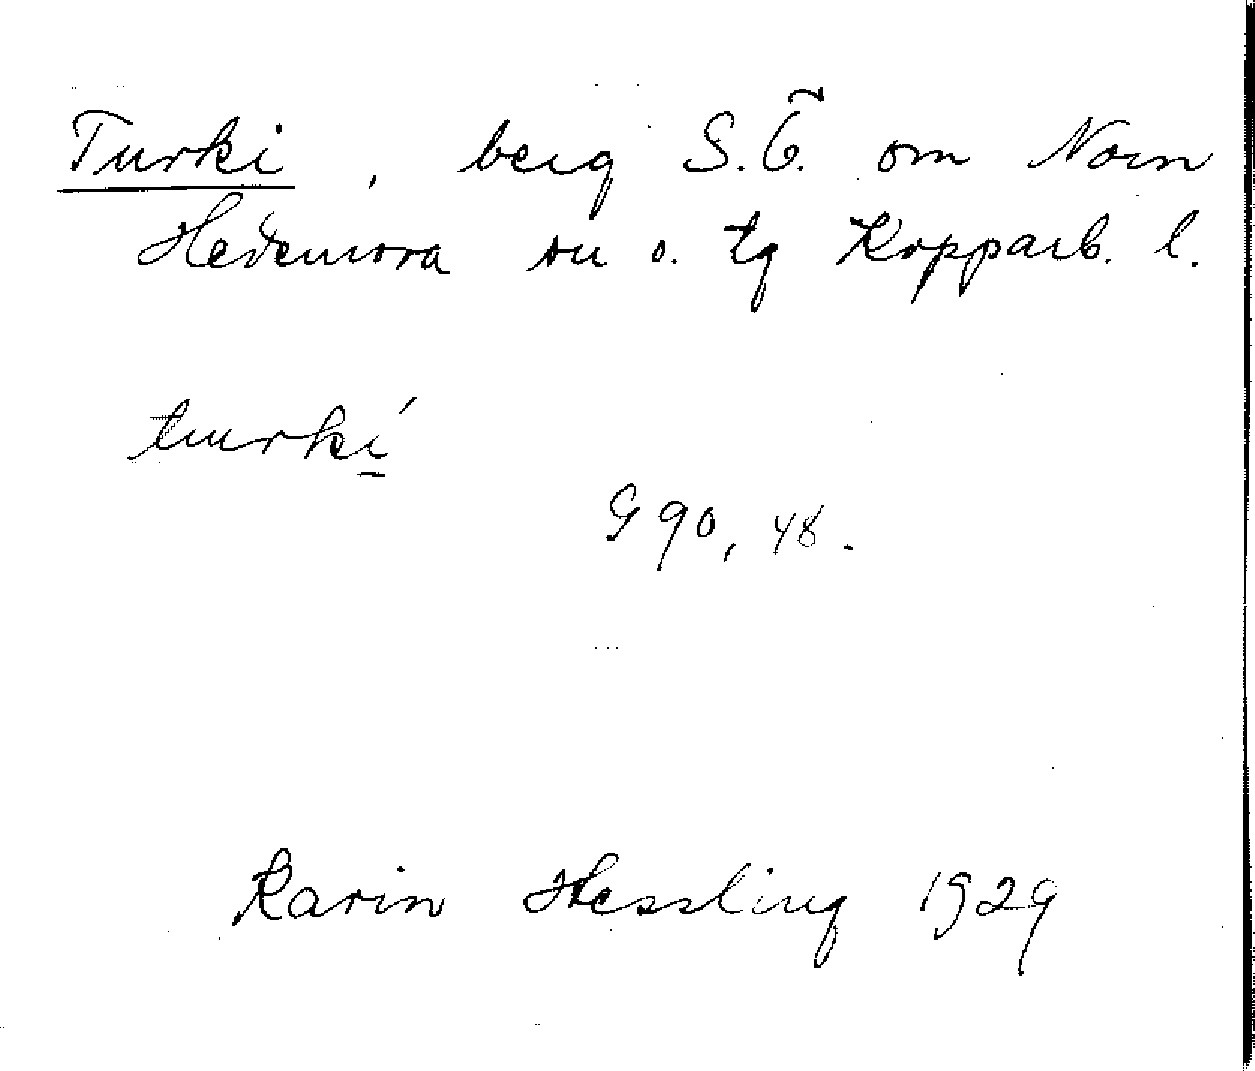 Turki, berg S.Ö. om Norn
Hedemora sn o. tg Kopparb. l.
turki´
G 90, 48.
Karin Hessling 1929